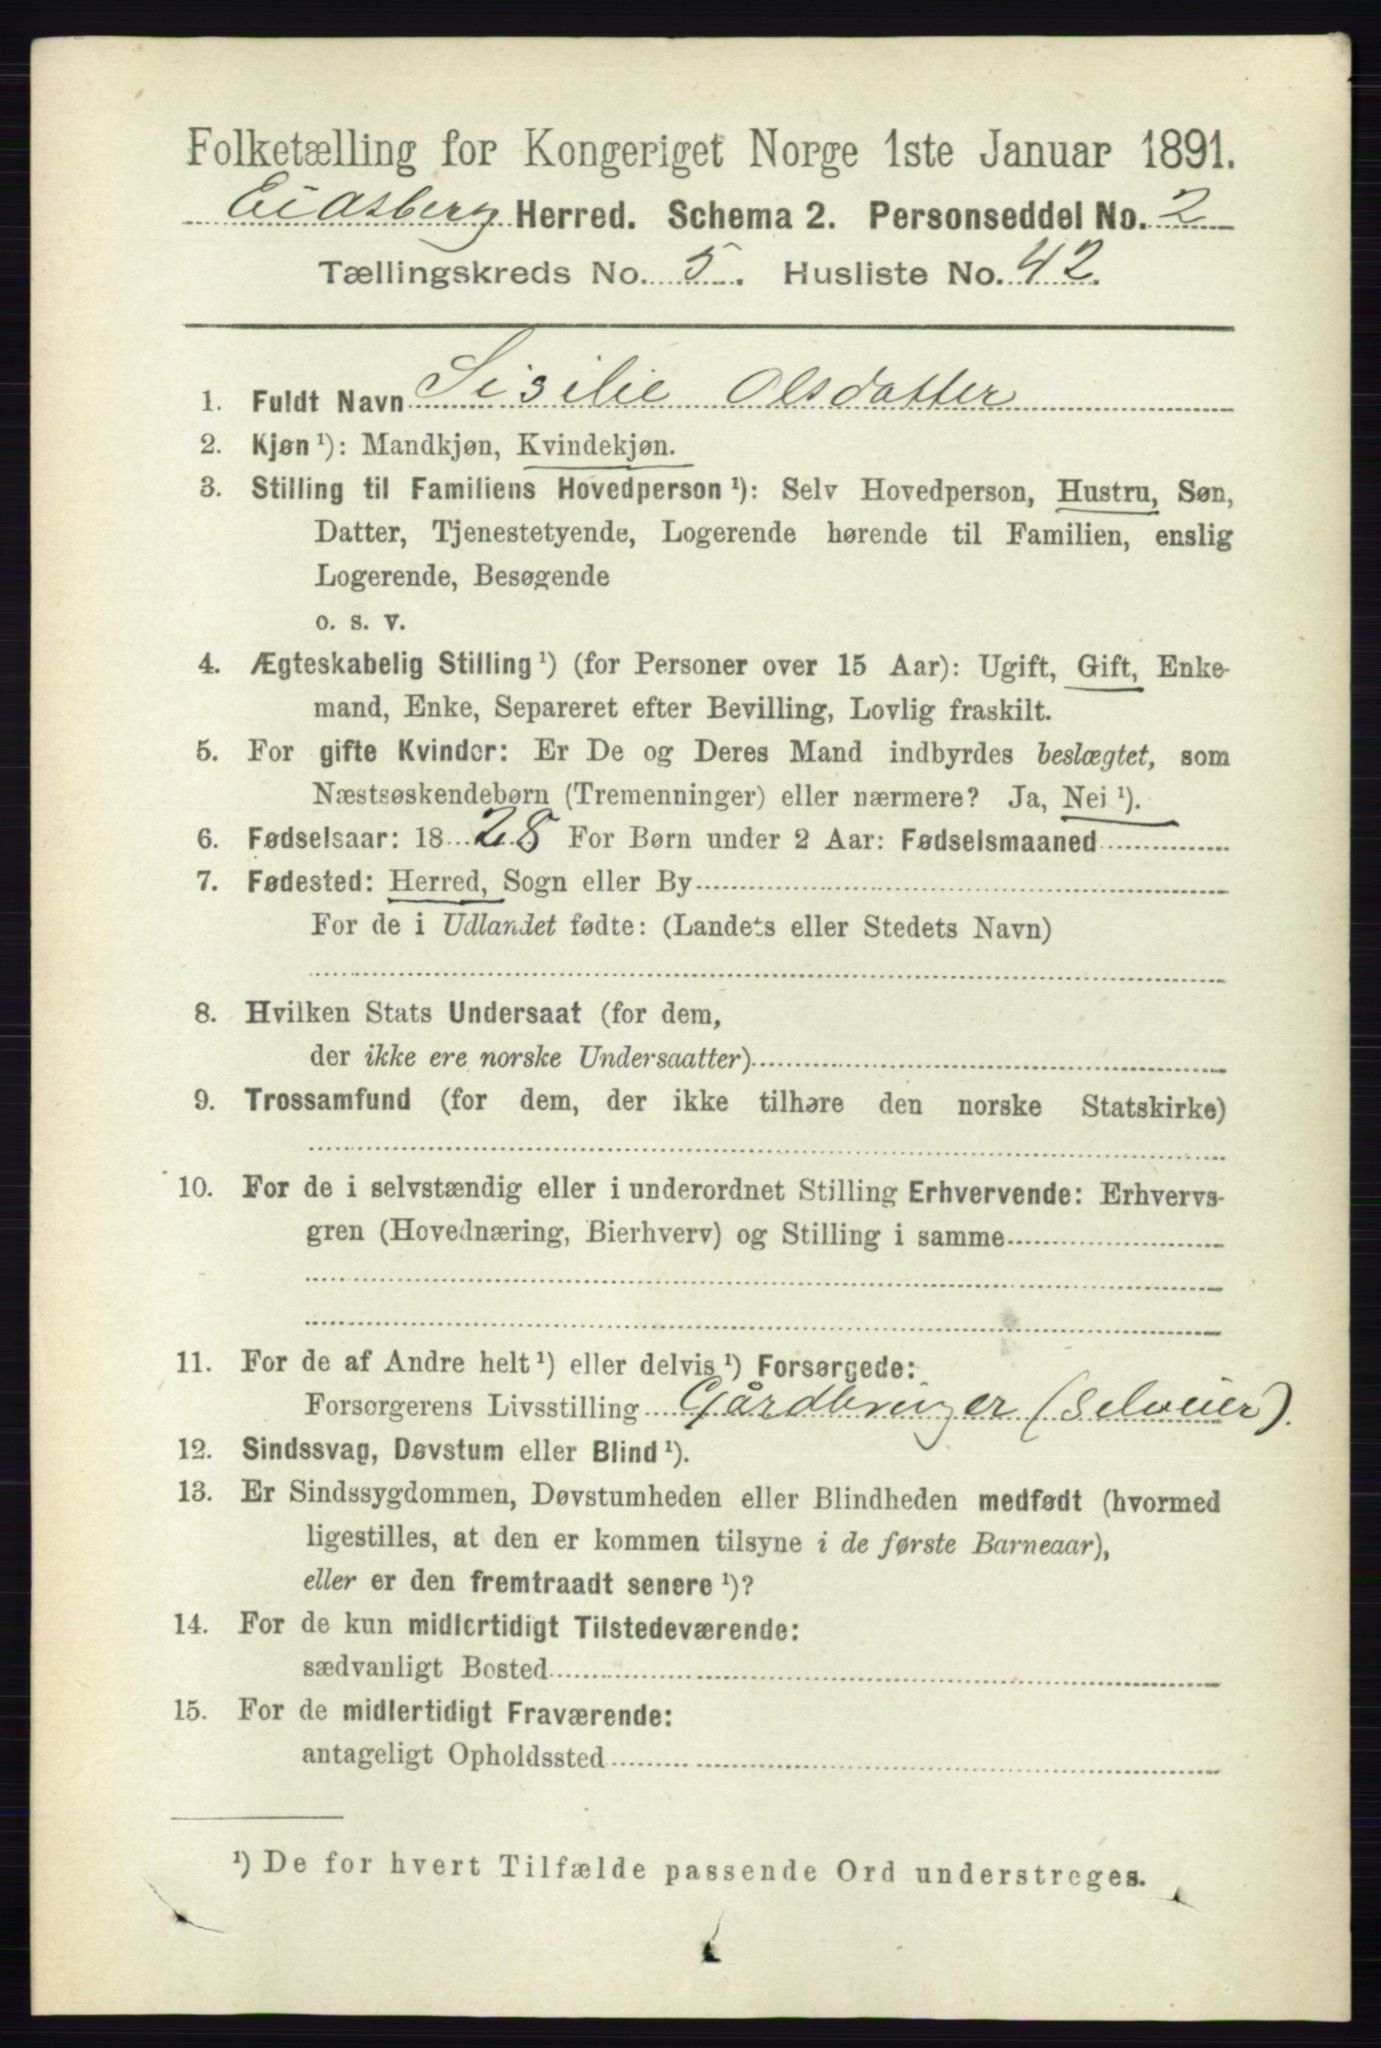 Folketælling for Kongeriget Norge 1ste Januar 1891.
Eidsberg Herred. Schema 2. Personseddel No. 2
Tællingskreds No. 5. Husliste No. 42.
1. Fuldt Navn Sisilie Olsdatter
2. Kjøn ¹): Mandkjøn, Kvindekjøn.
3. Stilling til Familiens Hovedperson ¹): Selv Hovedperson, Hustru, Søn,
Datter, Tjenestetyende, Logerende hørende til Familien, enslig
Logerende, Besøgende
o. s. v.
4. Ægteskabelig Stilling ¹) (for Personer over 15 Aar): Ugift, Gift, Enke-
mand, Enke, Separeret efter Bevilling, Lovlig fraskilt.
5. For gifte Kvinder: Er De og Deres Mand indbyrdes beslægtet, som
Næstsøskendebørn (Tremenninger) eller nærmere? Ja, Nei ¹).
6. Fødselsaar: 1828 For Børn under 2 Aar: Fødselsmaaned
7. Fødested: Herred, Sogn eller By
For de i Udlandet fødte: (Landets eller Stedets Navn)
8. Hvilken Stats Undersaat (for dem,
der ikke ere norske Undersaatter)
9. Trossamfund (for dem, der ikke tilhøre den norske Statskirke)
10. For de i selvstændig eller i underordnet Stilling Erhvervende: Erhvervs-
gren (Hovednæring, Bierhverv) og Stilling i samme
11. For de af Andre helt ¹) eller delvis ¹) Forsørgede:
Forsørgerens Livsstilling Gårdbruger (selveier).
12. Sindssvag, Døvstum eller Blind ¹).
13. Er Sindssygdommen, Døvstumheden eller Blindheden medfødt (hvormed
ligestilles, at den er kommen tilsyne i de første Barneaar),
eller er den fremtraadt senere ¹)?
14. For de kun midlertidigt Tilstedeværende:
sædvanligt Bosted
15. For de midlertidigt Fraværende:
antageligt Opholdssted
¹) De for hvert Tilfælde passende Ord understreges.